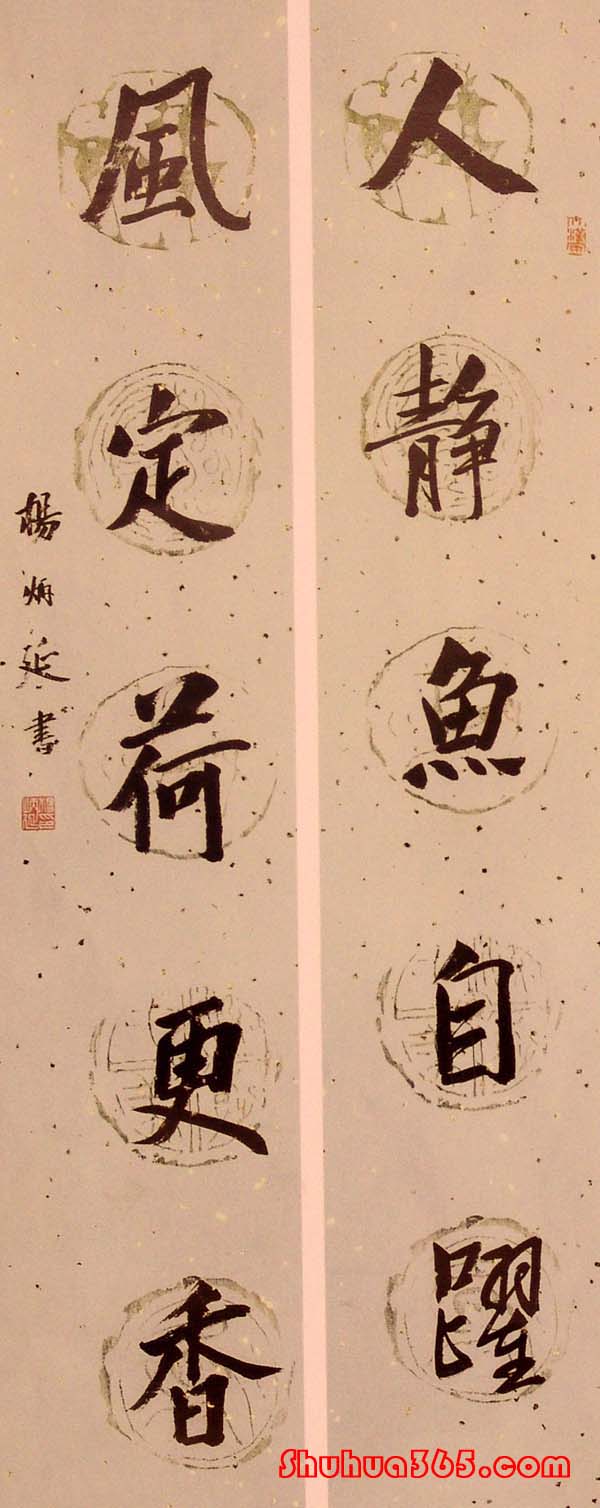 人静魚自躍
風定荷更香
楊炳延書
Shuhua365.com